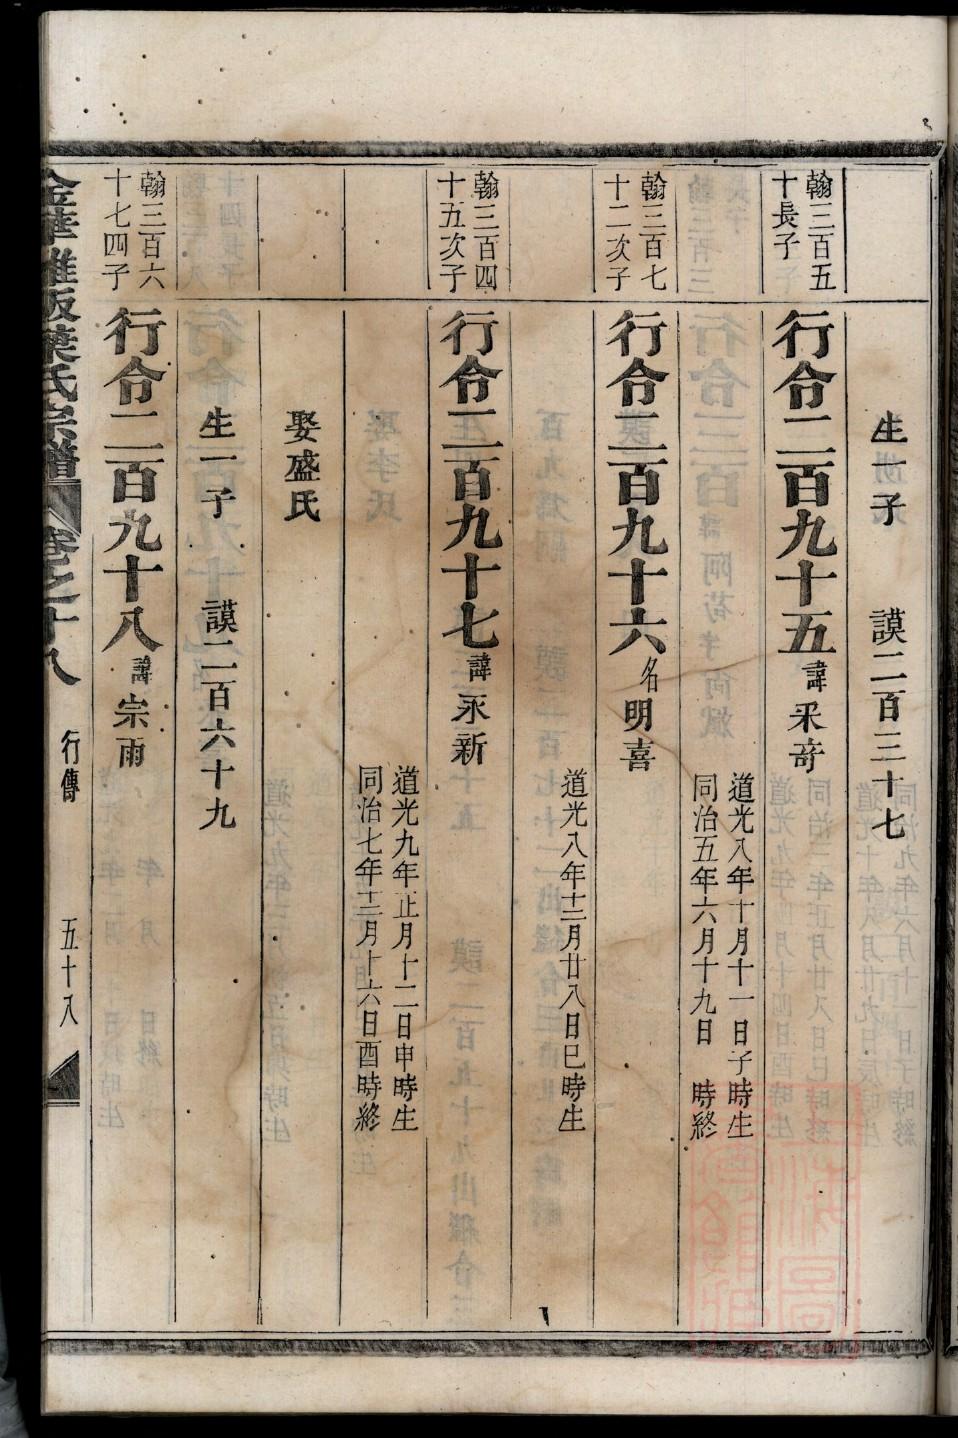 生一子　謨二百三十七
翰三百五
十長子
行令二百九十五諱釆竒
道光八年十月十一日子時生
同治五年六月十九日　時終
翰三百七
十二次子
行令二百九十六名明喜
道光八年十二月廿八日巳時生
翰三百四
十五次子
行令二百九十七諱永新
道光九年正月十二日申時生
同治七年十二月十六日酉時終
娶盛氏
生一子　謨二百六十九
翰三百六
十七四子
行令二百九十八諱宗雨
金華雅畈葉氏宗譜　卷之十八　行傳　五十八